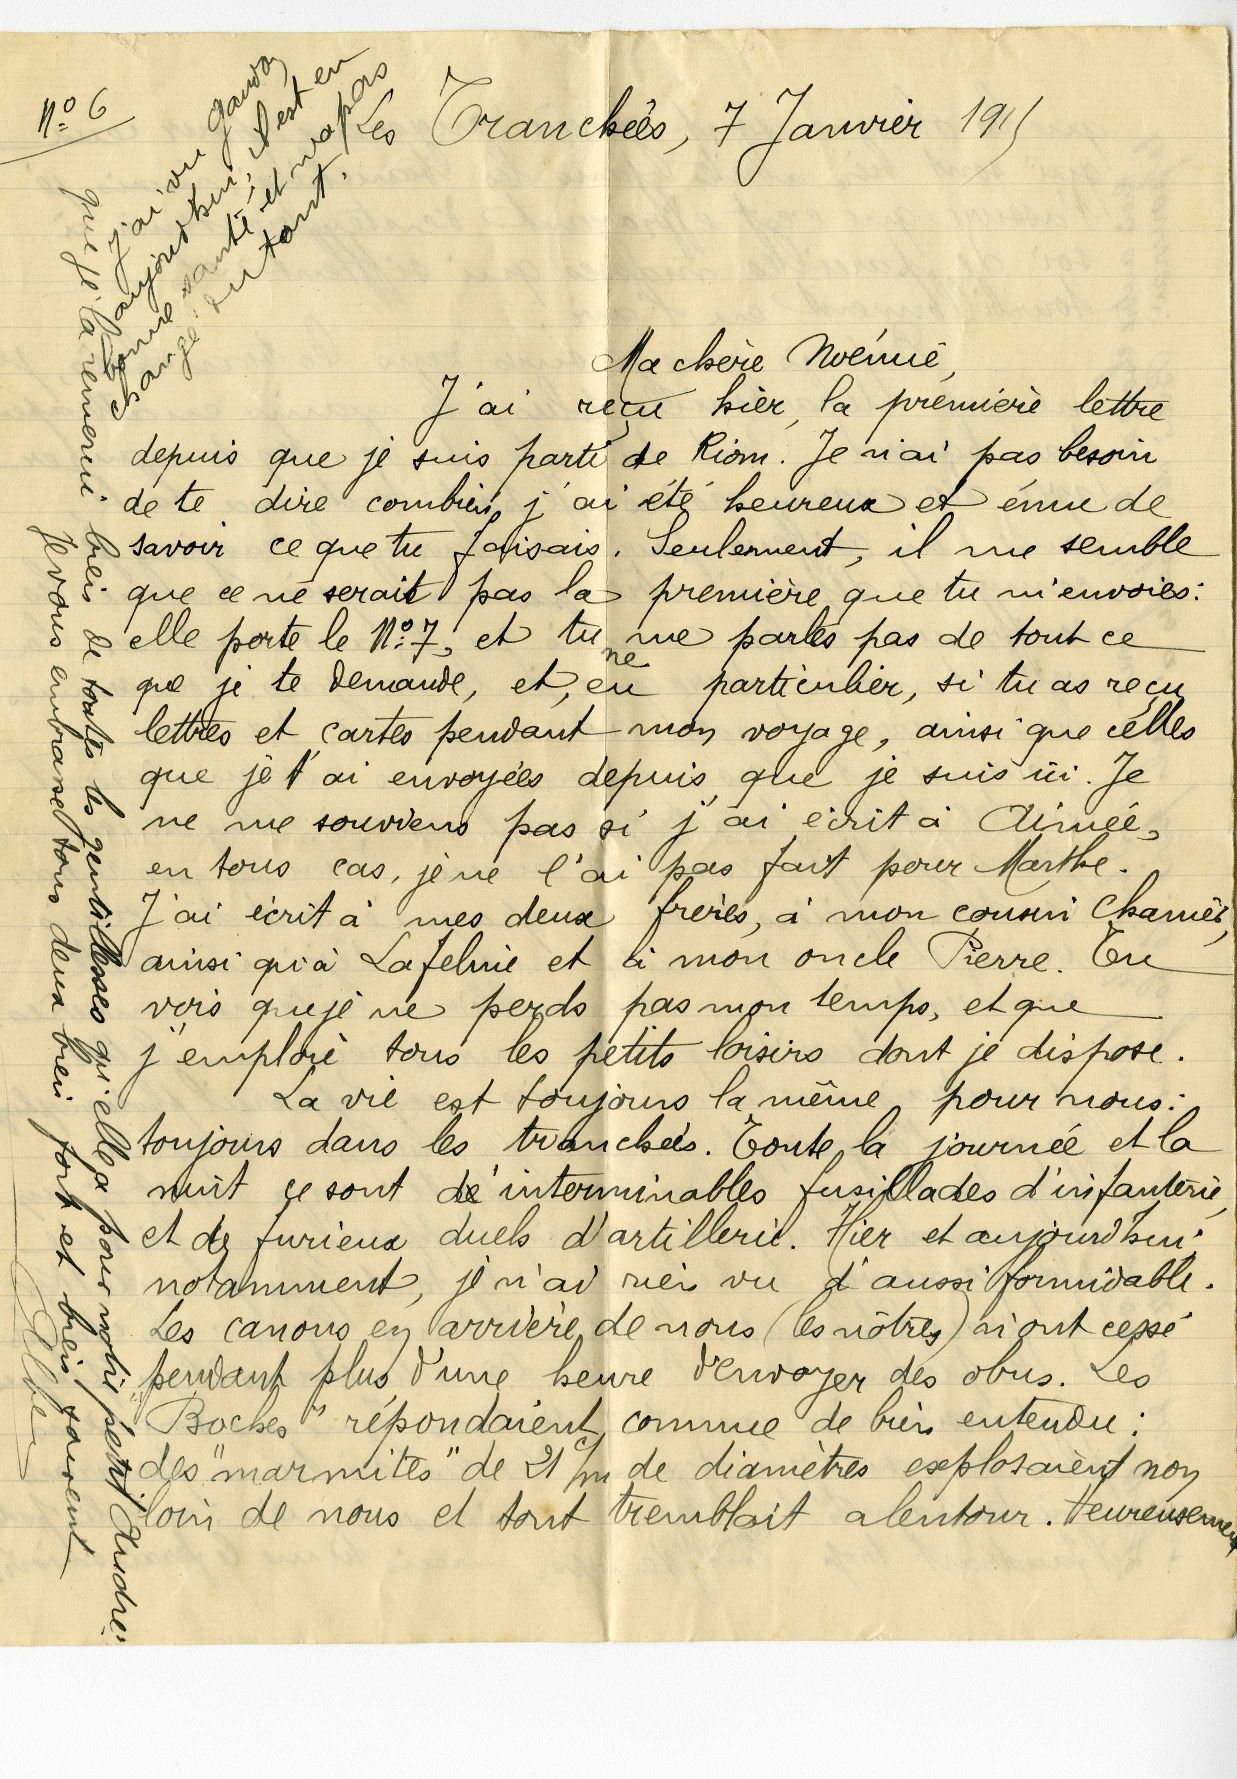 Nº 6
Les Tranchées, 7 Janvier 1915
j'ai vu
aujourd'hui, il est en
bonne santé et n'a pas
changé du tout.
Ma chère Noémie,
J'ai reçu hier, la première lettre
depuis que je suis parti de Riom. Je n'ai pas besoin
de te dire combien j'ai été heureux et ému de
savoir ce que tu faisais. Seulement, il me semble
que ce ne serait pas la première que tu m'envoies:
elle porte le Nº 7, et tu ne me parles pas de tout ce
que je te demande, et, en particulier, si tu as reçu
lettres et cartes pendant mon voyage, ainsi que celles
que je t'ai envoyées depuis que je suis ici. Je
ne me souviens pas si j'ai écrit à Aimée,
en tous cas, je ne l'ai pas fait pour Marthe.
J'ai écrit à mes deux frères, à mon cousin
ainsi qu'à et à mon oncle Pierre. Tu
vois que je ne perds pas mon temps, et que
j'emploie tous les petits loisirs dont je dispose.
La vie est toujours la même pour nous:
toujours dans les tranchées. Toute la journée et la
nuit ce sont de interminables fusillades d'infanterie,
et de furieux duels d'artillerie. Hier et aujourd'hui
notamment, je n'ai rien vu d'aussi formidable.
Les canons en arrière de nous (les nôtres) n'ont cessé
pendant plus d'une heure d'envoyer des obus. Les
"Boches" répondaient comme de bien entendu:
des "marmites" de 21 c/m de diamètres explosaient non
loin de nous et tout tremblait alentour. Heureusement
que je la remercie bien de toutes les gentillesses qu'elle a pour notre petit André.
Je vous embrasse tous deux bien fort et bien souvent
Albert